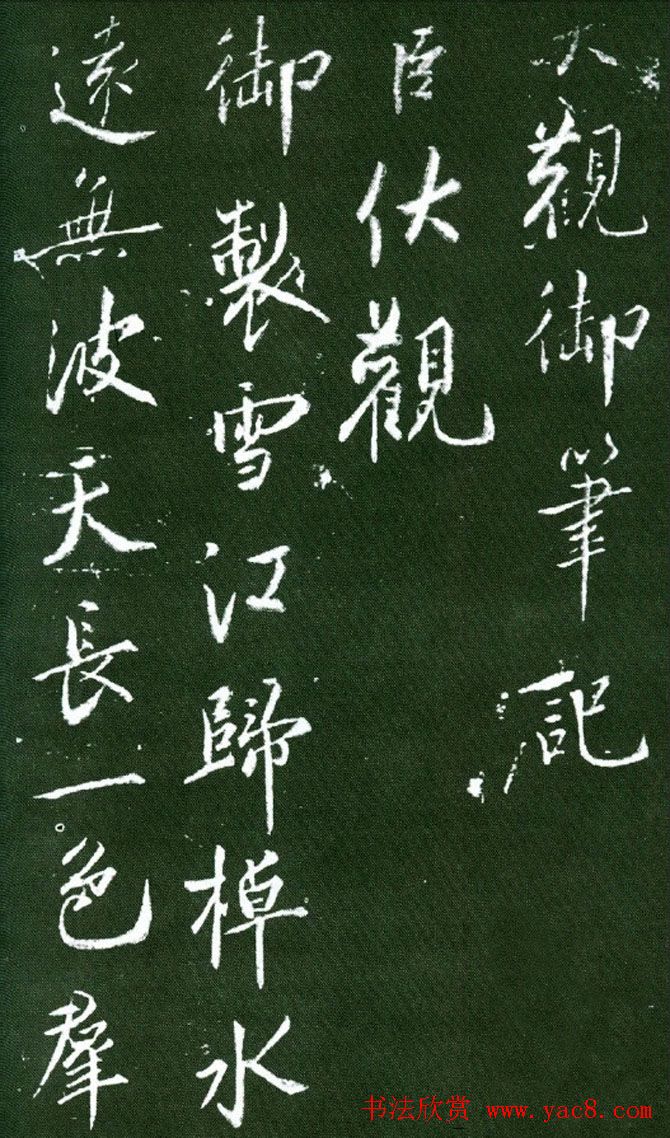 大觀御筆記
臣伏觀
御製雪江歸棹水
遠無波天長一色羣
书法欣赏 www.yac8.com